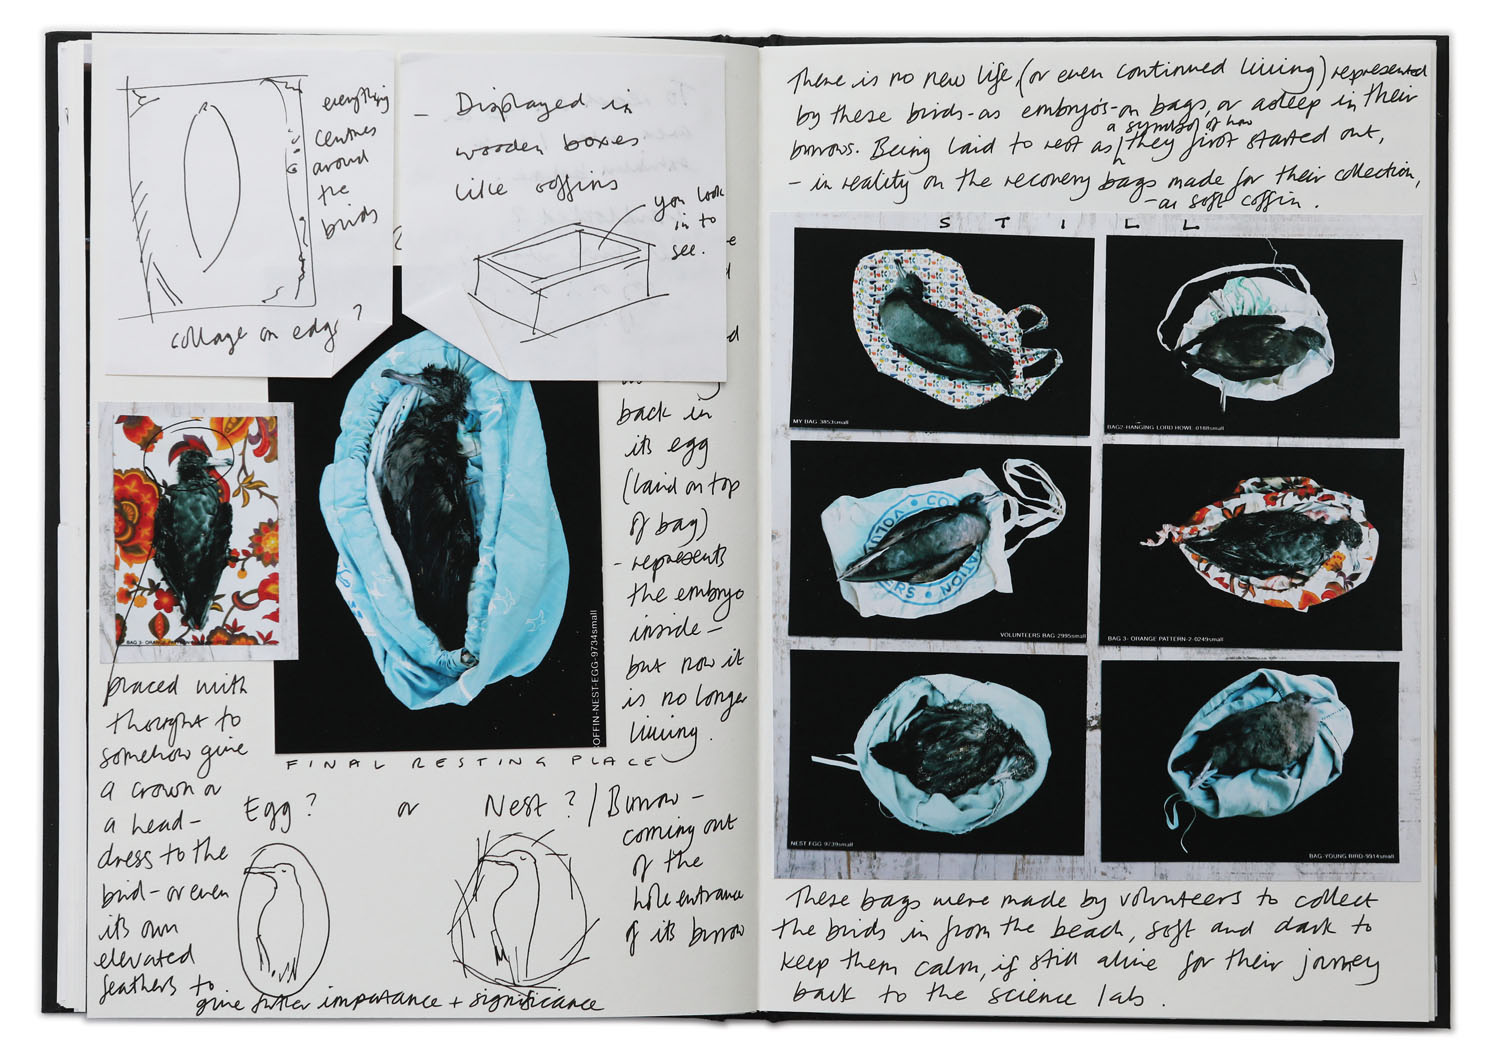 everything
centres
around
the
birds
collage on edge?
- Displayed in
wooden boxes
like coffins
you look
in to
see.
back in
its egg
(laid on top
of bag)
- represents
the embryo
inside -
but now it
is no longer
living.
BAG 3- ORANGE PATTERN
COFFIN-NEST-EGG-9734small
FINAL RESTING PLACE
placed with
thought to
somehow give
a crown or
a head-
dress to the
bird - or even
its own
elevated
feathers to
give further importance + significance
Egg? or Nest? / Burrow -
coming out
of the
hole entrance
of its burrow
There is no new life, (or even continued living) represented
by these birds - as embryo's - on bags, or asleep in their
burrows. Being laid to rest as a symbol of how they first started out,
- in reality on the recovery bags made for their collection,
- as soft coffin.
STILL
MY BAG 3853small
BAG2-HANGING LORD HOWE -0188small
VOLUNTEERS
VOLUNTEERS BAG 2995small
BAG 3- ORANGE PATTERN-2-0249small
NEST EGG 9739small
BAG-YOUNG BIRD-9914small
These bags were made by volunteers to collect
the birds in from the beach, soft and dark to
keep them calm, if still alive for their journey
back to the science lab.